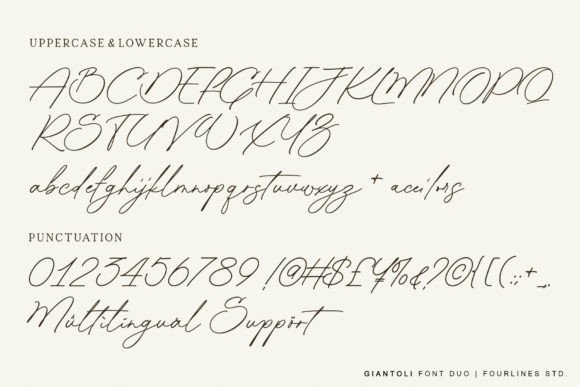 UPPERCASE & LOWERCASE
ABCDEFGHIJKLMNOPQ
RSTUVWXYZ
abcdefghijklmnopqrstuvwxyz + aceilors
PUNCTUATION
0123456789 !@#$£¥%&?©{[(.;+_
Mûltilingual Suppört
GIANTOLI FONT DUO | FOURLINES STD.